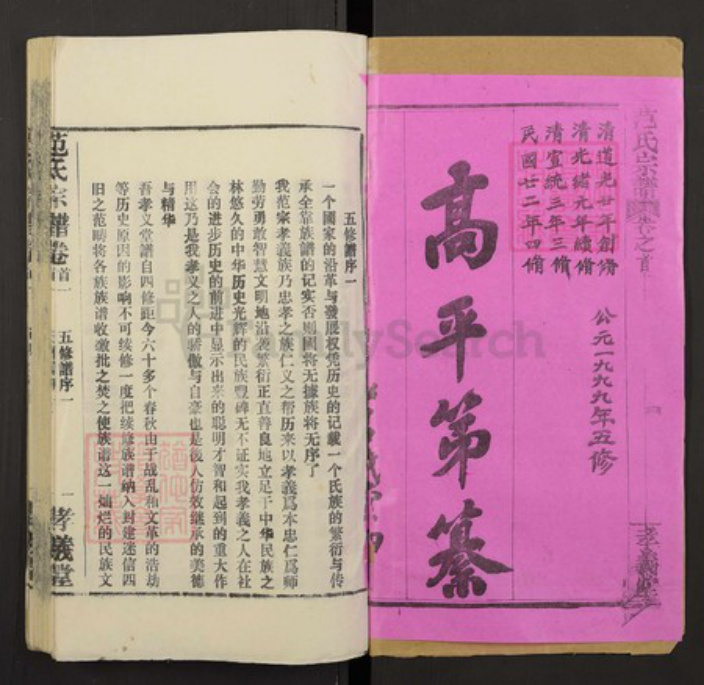 范氏宗譜
卷之首
孝義堂
清道光廿年創脩
清光緒元年續脩
清宣統三年三脩
民國廿二年四脩
公元一九九九年五修
高平第纂
五修譜序一
一个國家的沿革与發展权凭历史的记載一个氏族的繁衍与传
承全靠族譜的记实否则國将无據族将无序了
我范家孝義族乃忠孝之族仁义之帮历来以孝義爲本忠仁爲师
勤劳勇敢智慧文明地沿袭繁衍正直善良地立足于中华民族之
林悠久的中华历史光辉的民族豐碑无不证实我孝義之人在社
会的进步历史的前进中显示出来的聪明才智和起到的重大作
用这乃是我孝义之人的骄傲与自豪也是後人仿效继承的美德
与精华
吾孝义堂譜自四修距今六十多个春秋由于战乱和文革的浩劫
等历史原因的影响不可续修一度把续修族谱納入封建迷信四
旧之范畴将各族族谱收缴批之焚之使族谱这一灿烂的民族文
范氏宗譜卷首
五修譜序一
一
孝義堂
FamilySearch